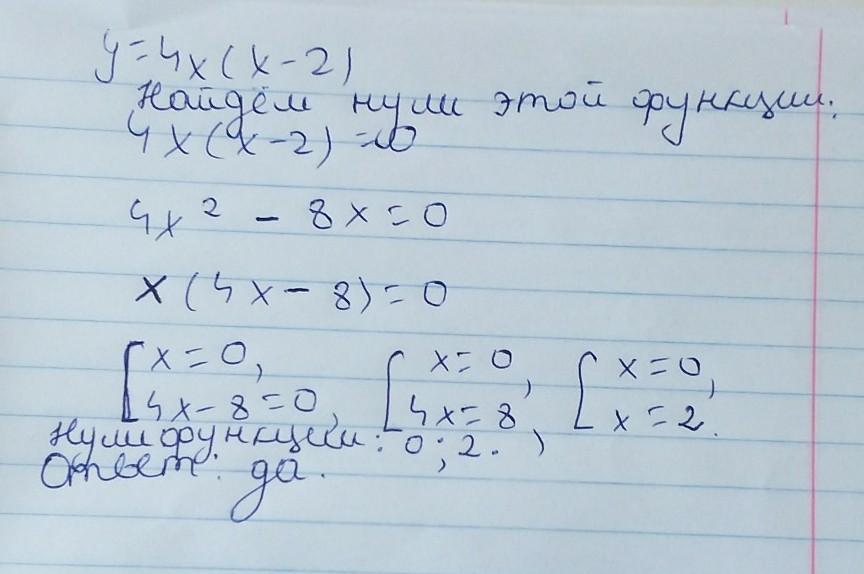 y=4x(x-2)
Найдём нули этой функции:
4x(x-2)=0
4x² - 8x=0
x(4x-8)=0
[x=0, [x=0, [x=0,
[4x-8=0, [4x=8, [x=2.
Нули функции: 0; 2.
Ответ: да.